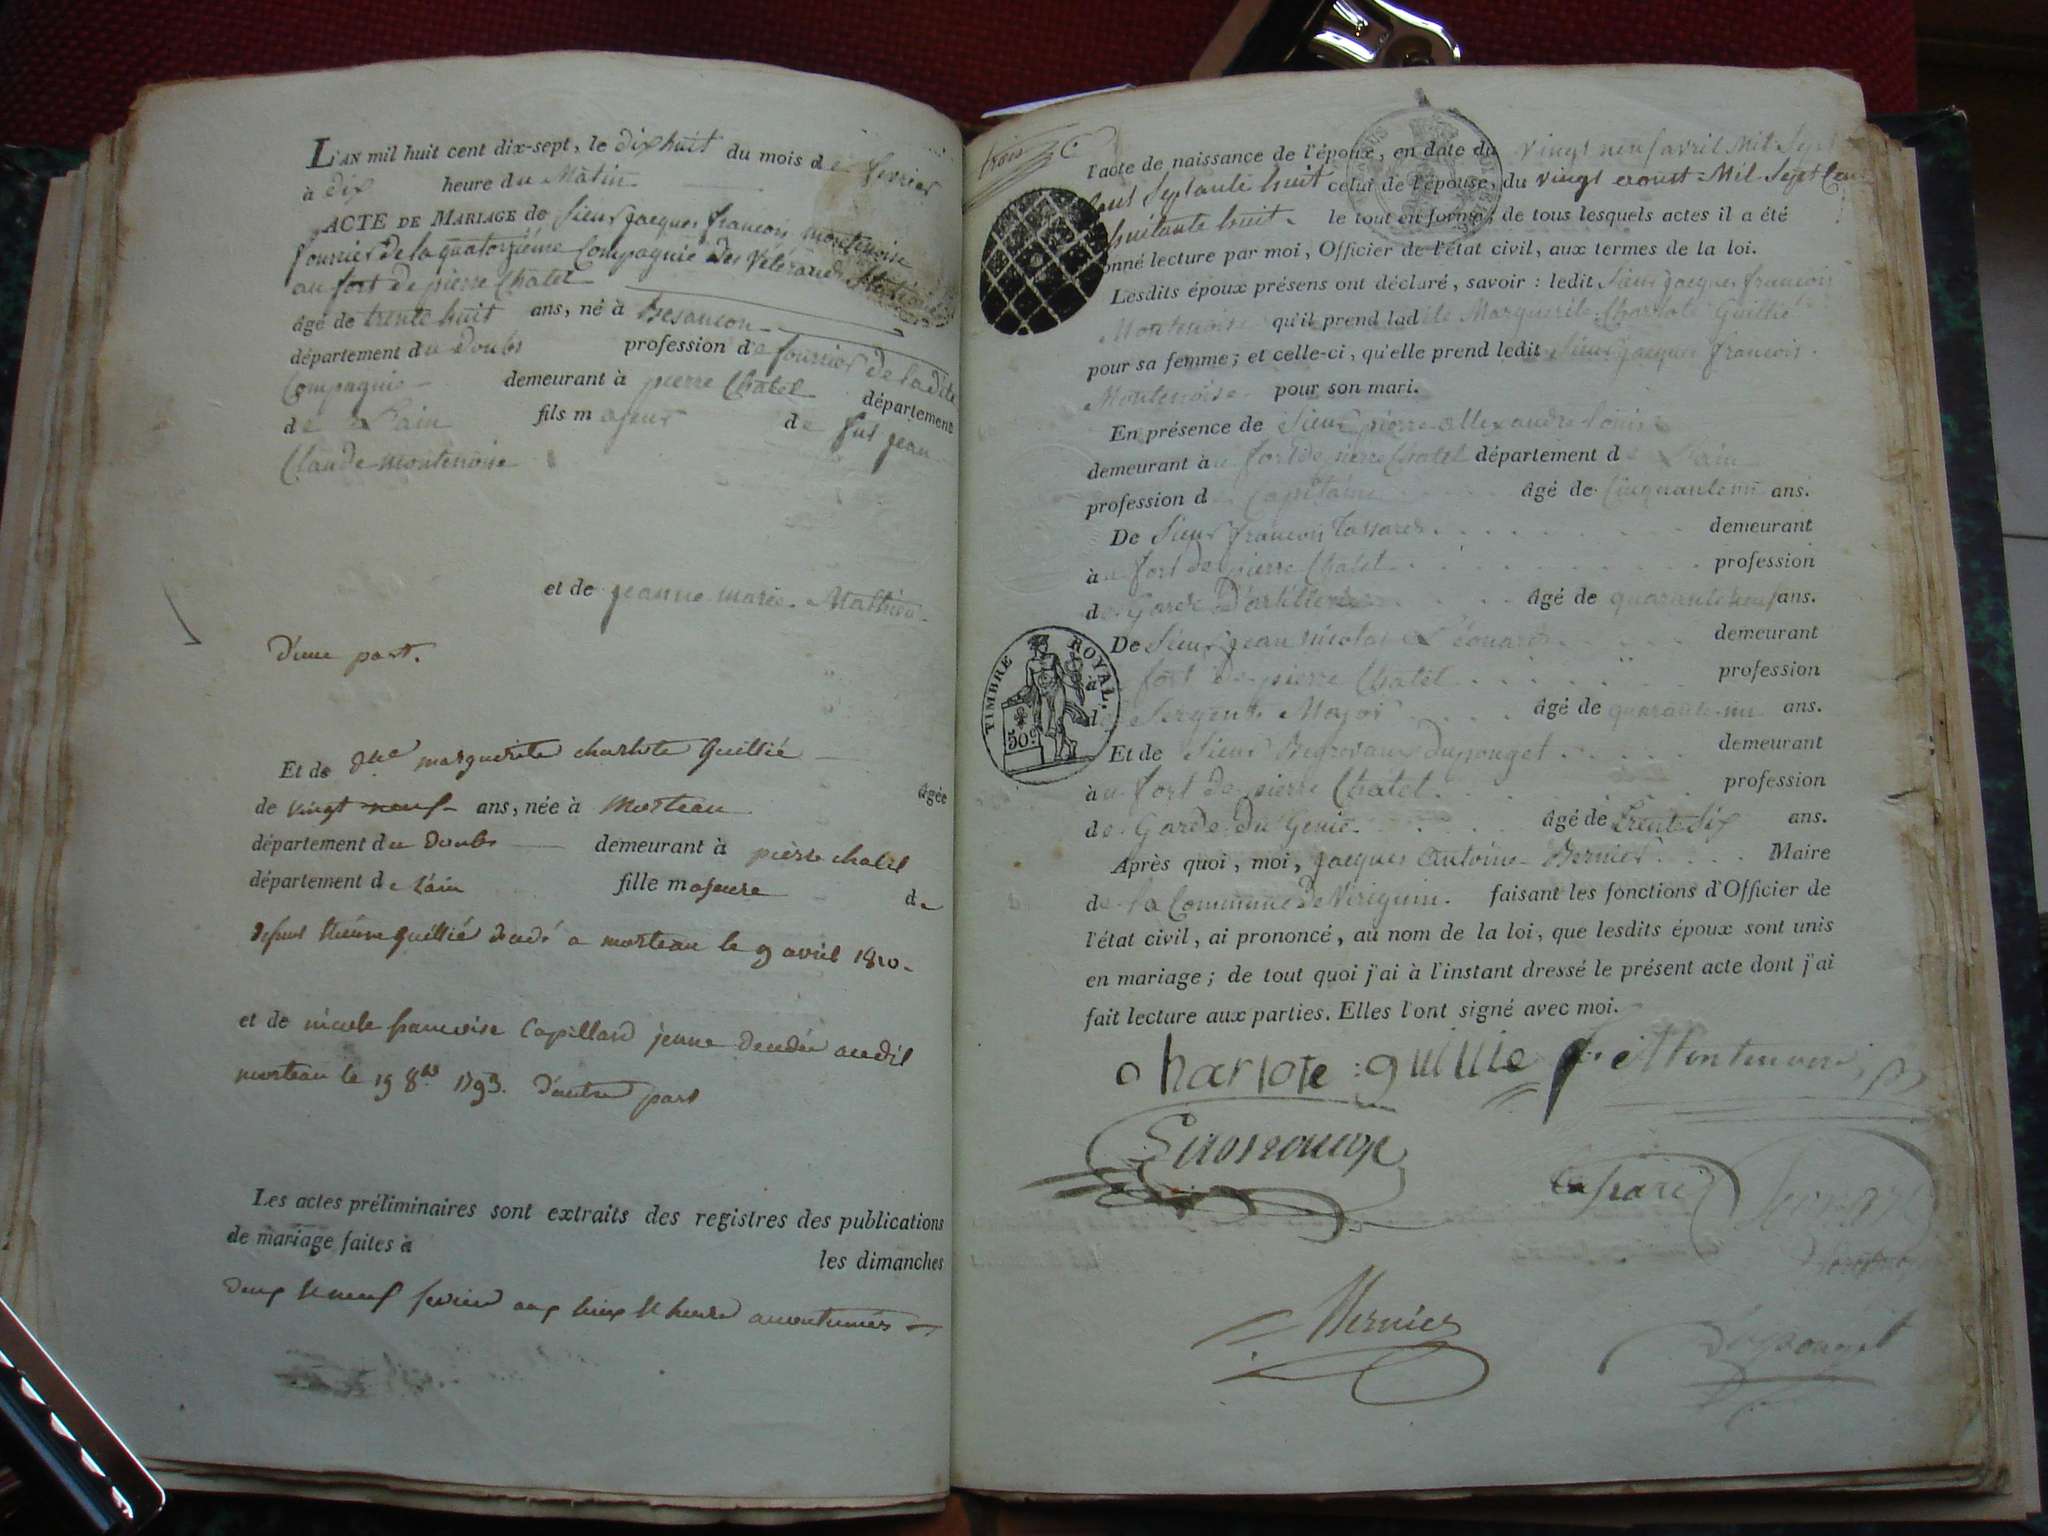 L'AN mil huit cent dix-sept, le dix huit du mois de fevrier
à dix heure du Matin
ACTE DE MARIAGE de Sieur Jacques francois montenoise
fourrier de la quatorzième Compagnie des Véterans
au fort de pierre Chatel
âgé de trente huit ans, né à Besancon
département du Doubs profession de fourrier de ladite
Compagnie demeurant à pierre Chatel département
de L'ain fils majeur de fut jean
Claude montenoise
et de jeanne marie Mathieu
D'une part.
Et de dlle marguerite charlote Guillié
âgée
de vingt neuf ans, née à Morteau
département du Doubs demeurant à pierre chatel
département de L'ain fille majeure de
defunt guillié décédé a morteau le 9 avril 1810
et de nicole francoise Capillard décédée audit
morteau le 19 8bre 1793. D'autre part
Les actes préliminaires sont extraits des registres des publications
de mariage faites à les dimanches
Deux et neuf fevrier aux lieux et heure accoutumés
l'acte de naissance de l'époux, en date du vingt neuf avril Mil Sept
Cent Septante huit celui de l'épouse, du vingt aoust Mil Sept Cent
huitante huit. le tout en forme; de tous lesquels actes il a été
donné lecture par moi, Officier de l'état civil, aux termes de la loi.
Lesdits époux présens ont déclaré, savoir : ledit Sieur jacques francois
Montenoise qu'il prend lad elle Marguerite Charlote Guillié
pour sa femme; et celle-ci, qu'elle prend ledit Sieur jacques francois
Montenoise pour son mari.
En présence de Sieur pierre allexandre
demeurant au fort de pierre Chatel département de L'ain
profession de Capitaine âgé de Cinquante un ans.
De Sieur francois demeurant
au fort de pierre Chatel profession
de Garde D'artillerie âgé de quarante neuf ans.
De Sieur jean nicolas Léonard demeurant
à fort de pierre Chatel profession
de Sergent Major âgé de quarante un ans.
TIMBRE ROYAL.
50 c
Et de Sieur Dupouget demeurant
au fort de pierre Chatel profession
de Garde du Génie âgé de trente six ans.
Après quoi, moi, jacques Antoine Bernier Maire
de la Commune de Virignin. faisant les fonctions d'Officier de
l'état civil, ai prononcé, au nom de la loi, que lesdits époux sont unis
en mariage; de tout quoi j'ai à l'instant dressé le présent acte dont j'ai
fait lecture aux parties. Elles l'ont signé avec moi.
charlote guillie
Bernier